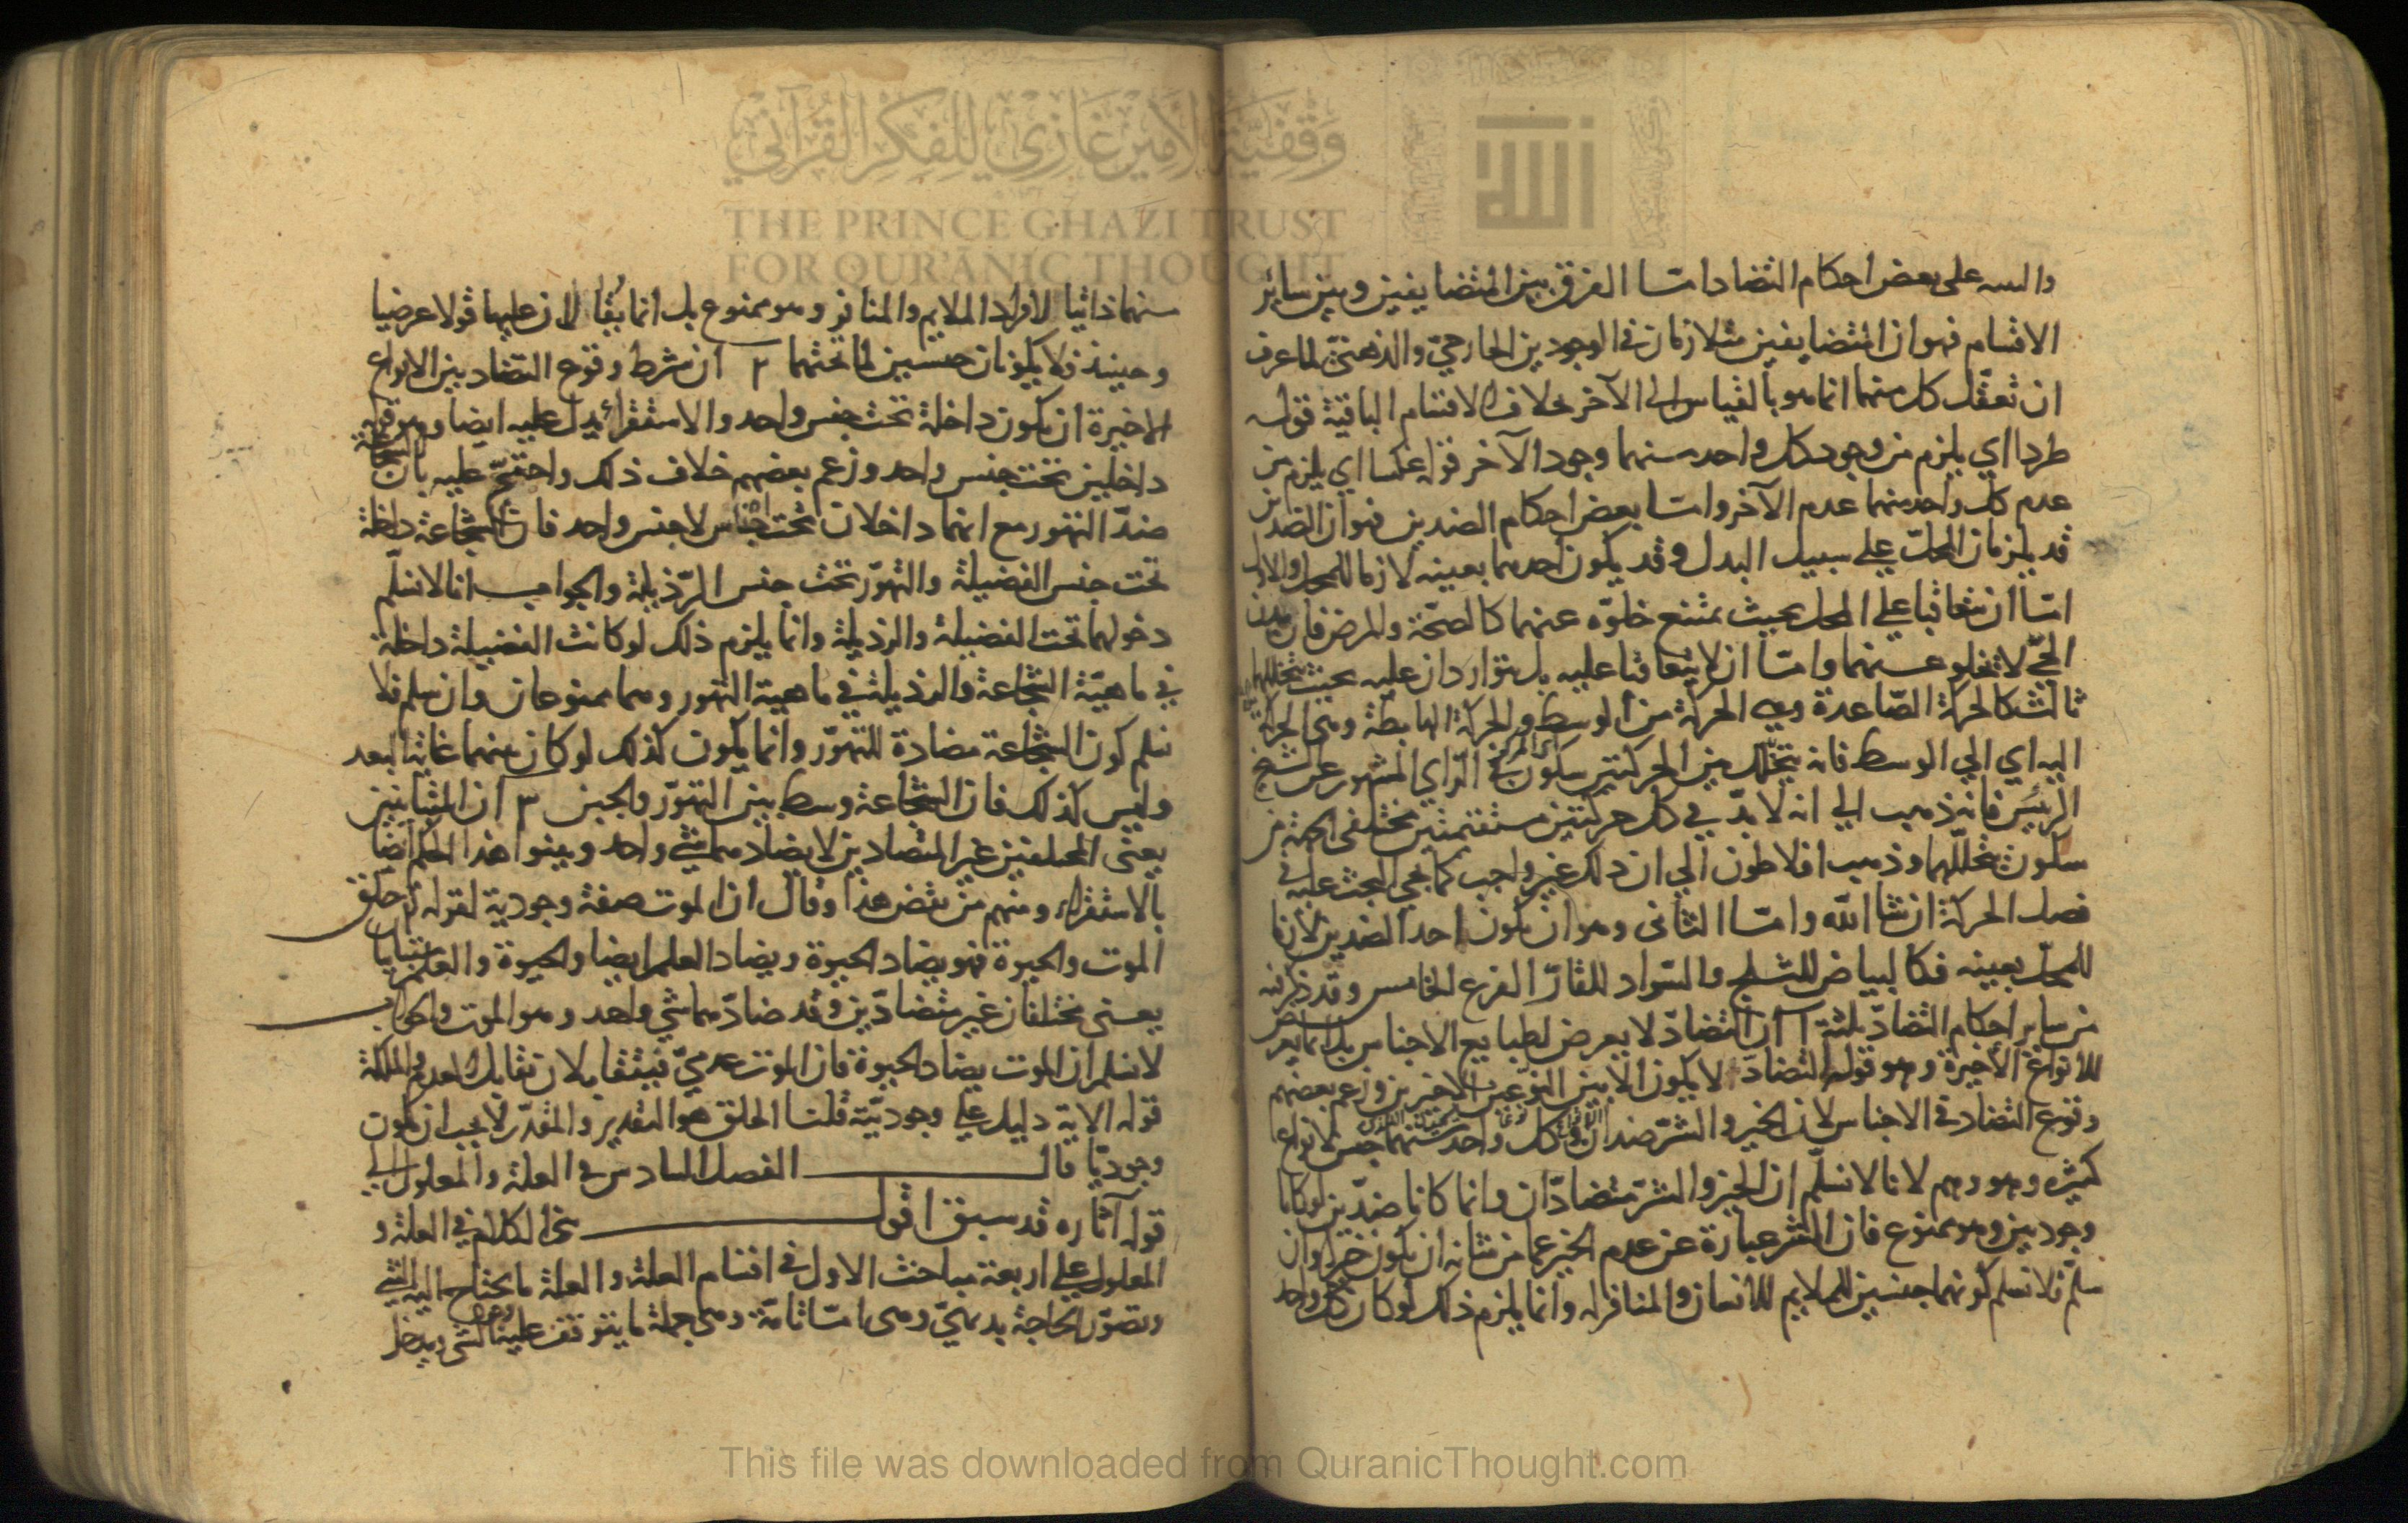 والسه على بعض احكام التضاد اما الفرق بين المتضايفين وبين ساير
الاقسام فهو ان المتضايفين متلازمان في الوجودين الخارجي والذهني لما عرف
ان تعقل كل منهما انما هو بالقياس الى الآخر بخلاف الاقسام الباقية قوله
طردا اي يلزم من وجود كل واحد منهما وجود الآخر قوله عكسا اي يلزم من
عدم كل واحد منهما عدم الآخر واما بعض احكام الضدين فهو ان الضدين
قد يلزمان المحل على سبيل البدل وقد يكون احدهما بعينه لازما للمحل والاول
اما ان يتعاقبا على المحل بحيث يمتنع خلوه عنهما كالصحة والمرض فان بدن
الحي لا يخلو عنهما واما ان لا يتعاقبا عليه بل يتواردان عليه بحيث يتخللهما
ثالث كالحركة الصاعدة وهي الحركة من الوسط والحركة الهابطة وهي الحركة
اليه اي الى الوسط فانه يتخلل بين الحركتين سكون في الراي المشهور عن الشيخ
الرئيس فانه ذهب الى انه لا بد في كل حركتين مستقيمتين مختلفتي الجهة من
سكون يتخللهما وذهب افلاطون الى ان ذلك غير واجب كما يجي البحث عليه في
فصل الحركة ان شا الله واما الثاني وهو ان يكون احد الضدين لازما
للمحل بعينه فكالبياض للثلج والسواد للقار الفرع الخامس وقد ذكر فيه
من ساير احكام التضاد ثلثة ١ ان التضاد لا يعرض لطبايع الاجناس بل انما يعرض
للانواع الاخيرة وهو قوله التضاد لا يكون الا بين النوعين الاخيرين وزعم بعضهم
وقوع التضاد في الاجناس لان الخير والشر ضدان كل واحد منهما جنس لانواع
كثيرة وهو وهم لانا لا نسلم ان الخير والشر متضادان وانما كانا ضدين لو كانا
وجوديين وهو ممنوع فان الشر عبارة عن عدم الخير عما من شانه ان يكون خيرا وان
سلم فلا نسلم كونهما جنسين للملايم للانسان والمنافر له وانما يلزم ذلك لو كان كل واحد
منهما ذاتيا لافراد الملايم والمنافر وهو ممنوع بل انما يقالان عليها قولا عرضيا
وحينئذ فلا يكونان جنسين لما تحتهما ٢ ان شرط وقوع التضاد بين الانواع
الاخيرة ان يكون داخلة تحت جنس واحد والاستقرا يدل عليه ايضا وهو قوله
داخلين تحت جنس واحد وزعم بعضهم خلاف ذلك واحتج عليه بان الشجاعة
ضد التهور مع انهما داخلان تحت اجناس لا جنس واحد فان الشجاعة داخلة
تحت جنس الفضيلة والتهور تحت جنس الرذيلة والجواب انا لا نسلم
دخولهما تحت الفضيلة والرذيلة وانما يلزم ذلك لو كانت الفضيلة داخلة
في ماهية الشجاعة والرذيلة في ماهية التهور وهما ممنوعان وان سلم فلا
نسلم كون الشجاعة مضادة للتهور وانما يكون كذلك لو كان بينهما غاية البعد
وليس كذلك فان الشجاعة وسط بين التهور والجبن ٣ ان المتباينين
يعني المختلفين غير المتضادين لا يضادهما شي واحد وبينوا هذا الحكم ايضا
بالاستقراء ومنهم من نقض هذا وقال ان الموت صفة وجودية لقوله تع خلق
الموت والحيوة فهو يضاد الحيوة ويضاد العلم ايضا والحيوة والعلم متباينان
يعني مختلفان غير متضادين وقد ضادهما شي واحد وهو الموت والجواب
لا نسلم ان الموت يضاد الحيوة فان الموت عدمي فيتقابلان تقابل العدم والملكة
قوله الاية دليل على وجوديته قلنا الخلق هو التقدير والمقدر لا يجب ان يكون
وجوديا قال الفصل السادس في العلة والمعلول الى
قوله آثاره قد سبق اقول الكلام في العلة و
المعلول على اربعة مباحث الاول في اقسام العلة والعلة ما يحتاج اليه الشي
وتصور الحاجة بديهي وهي اما تامة وهي جملة ما يتوقف عليه وجود الشي ويدخل
وقفية الأمير غازي للفكر القرآني
الله
THE PRINCE GHAZI TRUST
FOR QUR'ĀNIC THOUGHT
This file was downloaded from QuranicThought.com